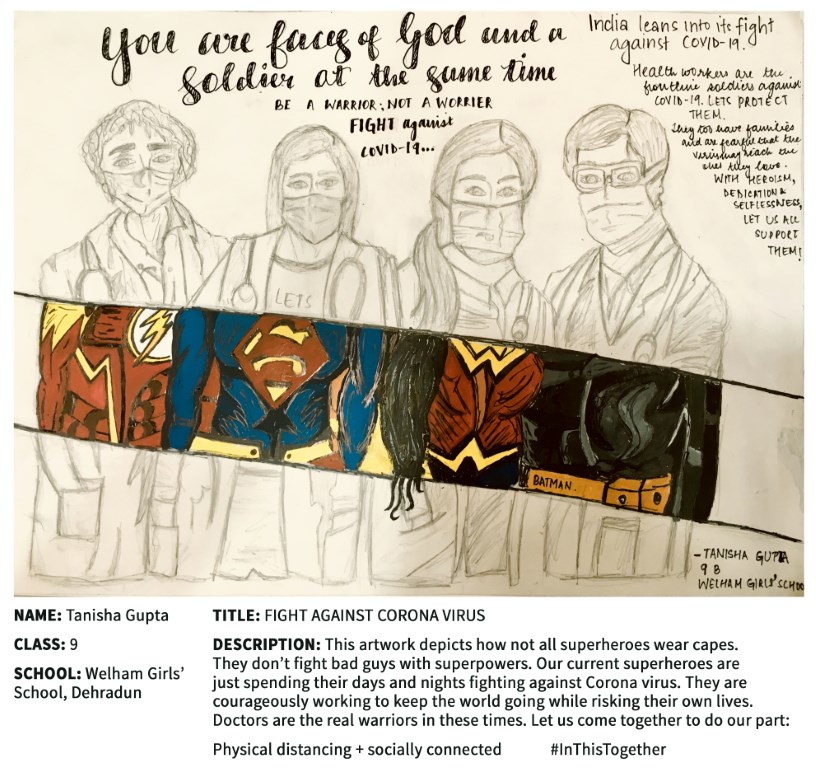 You are faces of God and a
Soldier at the same time
BE A WARRIOR, NOT A WORRIER
FIGHT against
COVID-19...
India leans into its fight
against COVID-19.
Health workers are the
frontline soldiers against
COVID-19. LETS PROTECT
THEM.
They too have families
and are fearful that the
virus may reach the
ones they love.
WITH HEROISM,
DEDICATION &
SELFLESSNESS,
LET US ALL
SUPPORT
THEM!
LETS
BATMAN
-TANISHA GUPTA
9 B
WELHAM GIRLS' SCHOO
NAME: Tanisha Gupta
CLASS: 9
SCHOOL: Welham Girls'
School, Dehradun
TITLE: FIGHT AGAINST CORONA VIRUS
DESCRIPTION: This artwork depicts how not all superheroes wear capes.
They don't fight bad guys with superpowers. Our current superheroes are
just spending their days and nights fighting against Corona virus. They are
courageously working to keep the world going while risking their own lives.
Doctors are the real warriors in these times. Let us come together to do our part:
Physical distancing + socially connected #InThisTogether